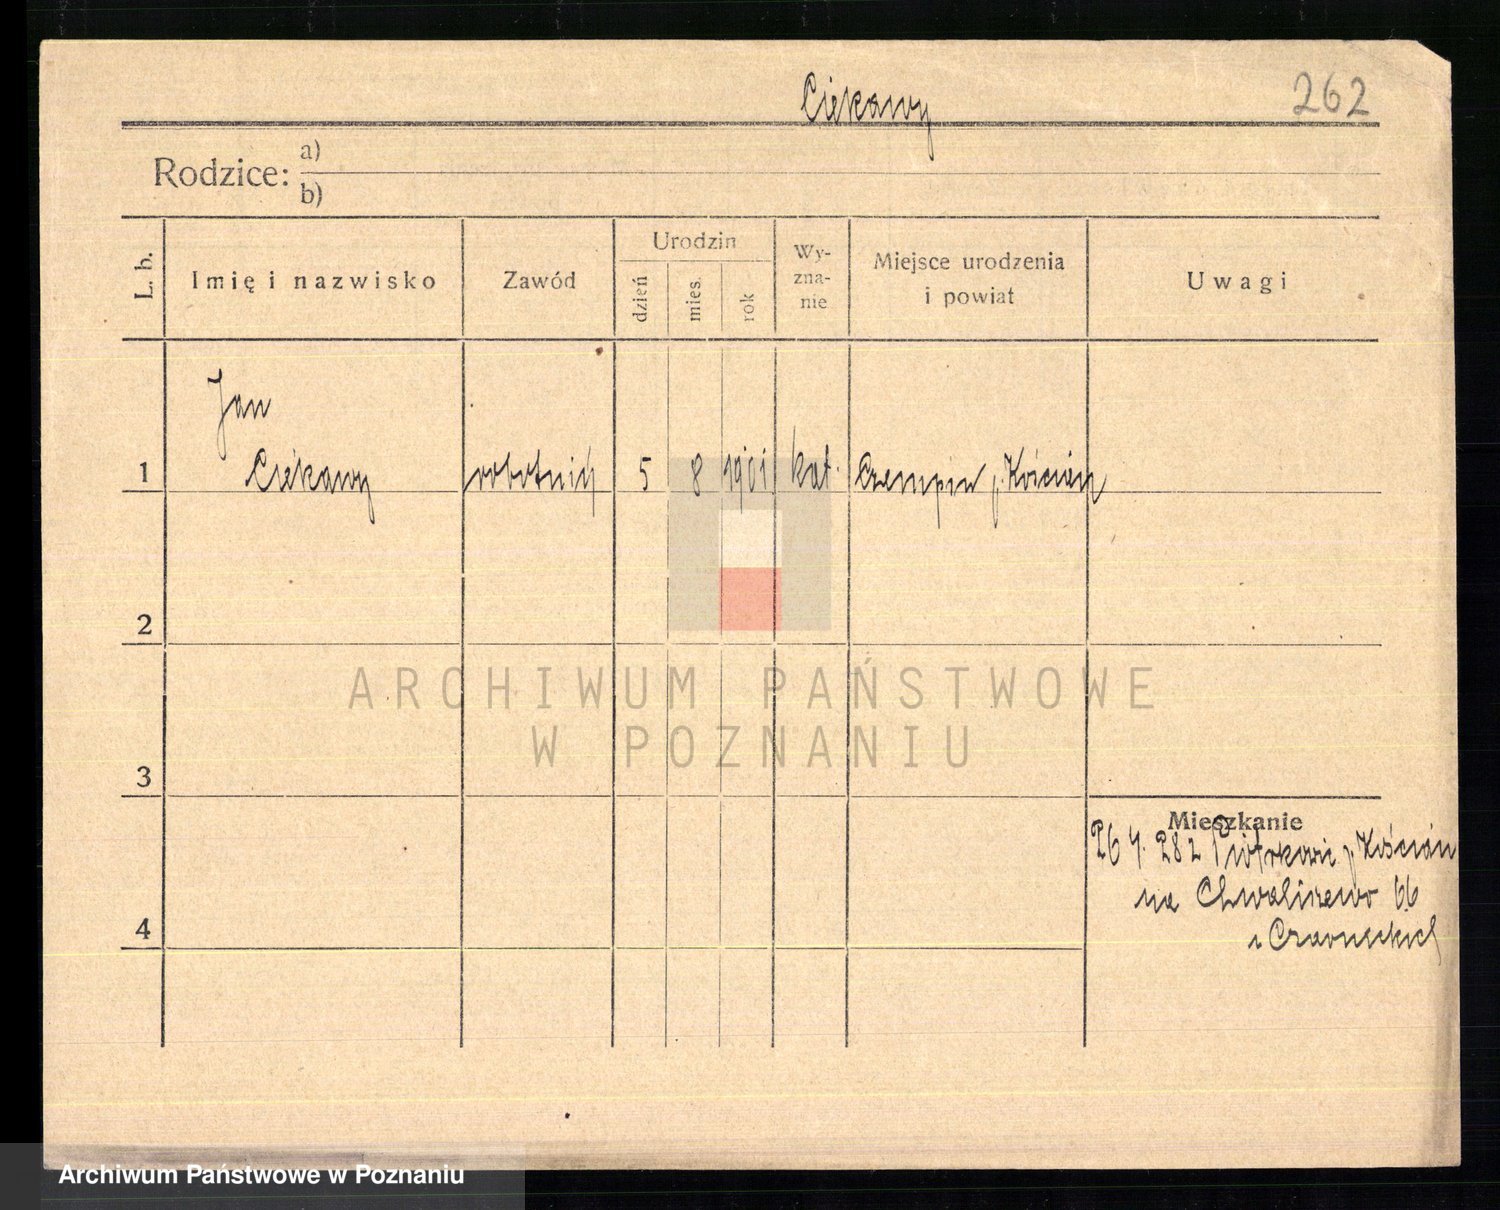 Ciekawy
262
Rodzice: a)
b)
L. b.
Imię i nazwisko
Zawód
Urodzin
dzień
mies.
rok
Wy-
zna-
nie
Miejsce urodzenia
i powiat
Uwagi
Jan
1 Ciekawy robotnik 5 8 1901 kat. Czempin p. Kościan
2
ARCHIWUM PAŃSTWOWE
W POZNANIU
3
Mieszkanie
26 4. 28 z p. Kościan
na Chwaliszewo 66
4
u Czarneckich
Archiwum Państwowe w Poznaniu